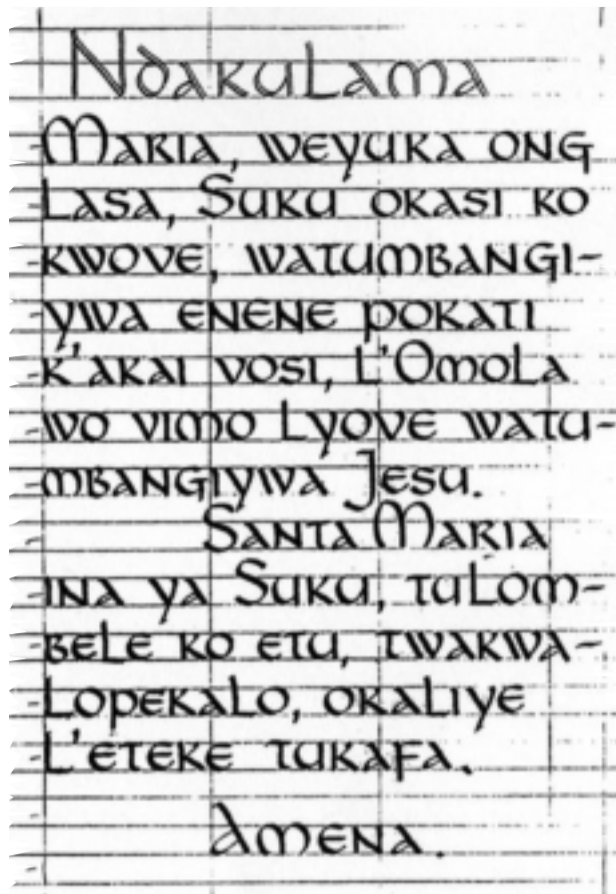 Ndakulama
Maria, weyuka ong
Lasa, Suku okasi ko
kwove, watumbangi-
ywa enene pokati
k'akai vosi, l'Omola
wo vimo lyove watu-
mbangiywa Jesu.
Santa Maria
ina ya Suku, tulom-
bele ko etu, twakwa-
lopekalo, okaliye
l'eteke tukafa.
Amena.